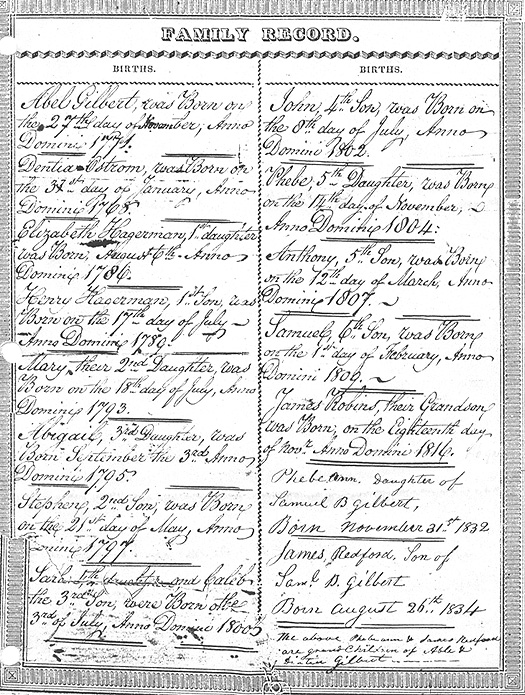 FAMILY RECORD.
BIRTHS.
Abel Gilbert, was Born on
the 27th day of November, Anno
Domini
Dentia Ostrom, was Born on
the 31st day of January, Anno
Domini 1768.
Elizabeth Hagerman, 1st daughter
was Born, August 6th Anno
Domini 1786.
Henry Hagerman, 1st Son, was
Born on the 17th day of July
Anno Domini 1789.
Mary, their 2nd Daughter, was
Born on the 18th day of July, Anno
Domini 1793.
Abigail, 3rd Daughter, was
Born September the 3rd Anno
Domini 1795.
Stephen, 2nd Son, was Born
on the 21st day of May, Anno
Domini 1797.
Sarah 4th and Caleb
the 3rd Son, were Born on the
3rd of July, Anno Domini 1800
BIRTHS.
John, 4th Son, was Born on
the 8th day of July, Anno
Domini 1802.
Phebe, 5th Daughter, was Born
on the 14th day of November,
Anno Domini 1804:
Anthony, 5th Son, was Born
on the 12th day of March, Anno
Domini 1807.
Samuel, 6th Son, was Born
on the 1st day of February, Anno
Domini 1809.
James Robins, their Grandson
was Born, on the Eighteenth day
of Novr. Anno Domini 1816.
Phebe Ann. Daughter of
Samuel B Gilbert,
Born November 31st 1832
James, Redford. Son of
Saml B. Gilbert
Born August 26th. 1834
The above Pheban & James Redford
are grand Children of Able &
Gilbert